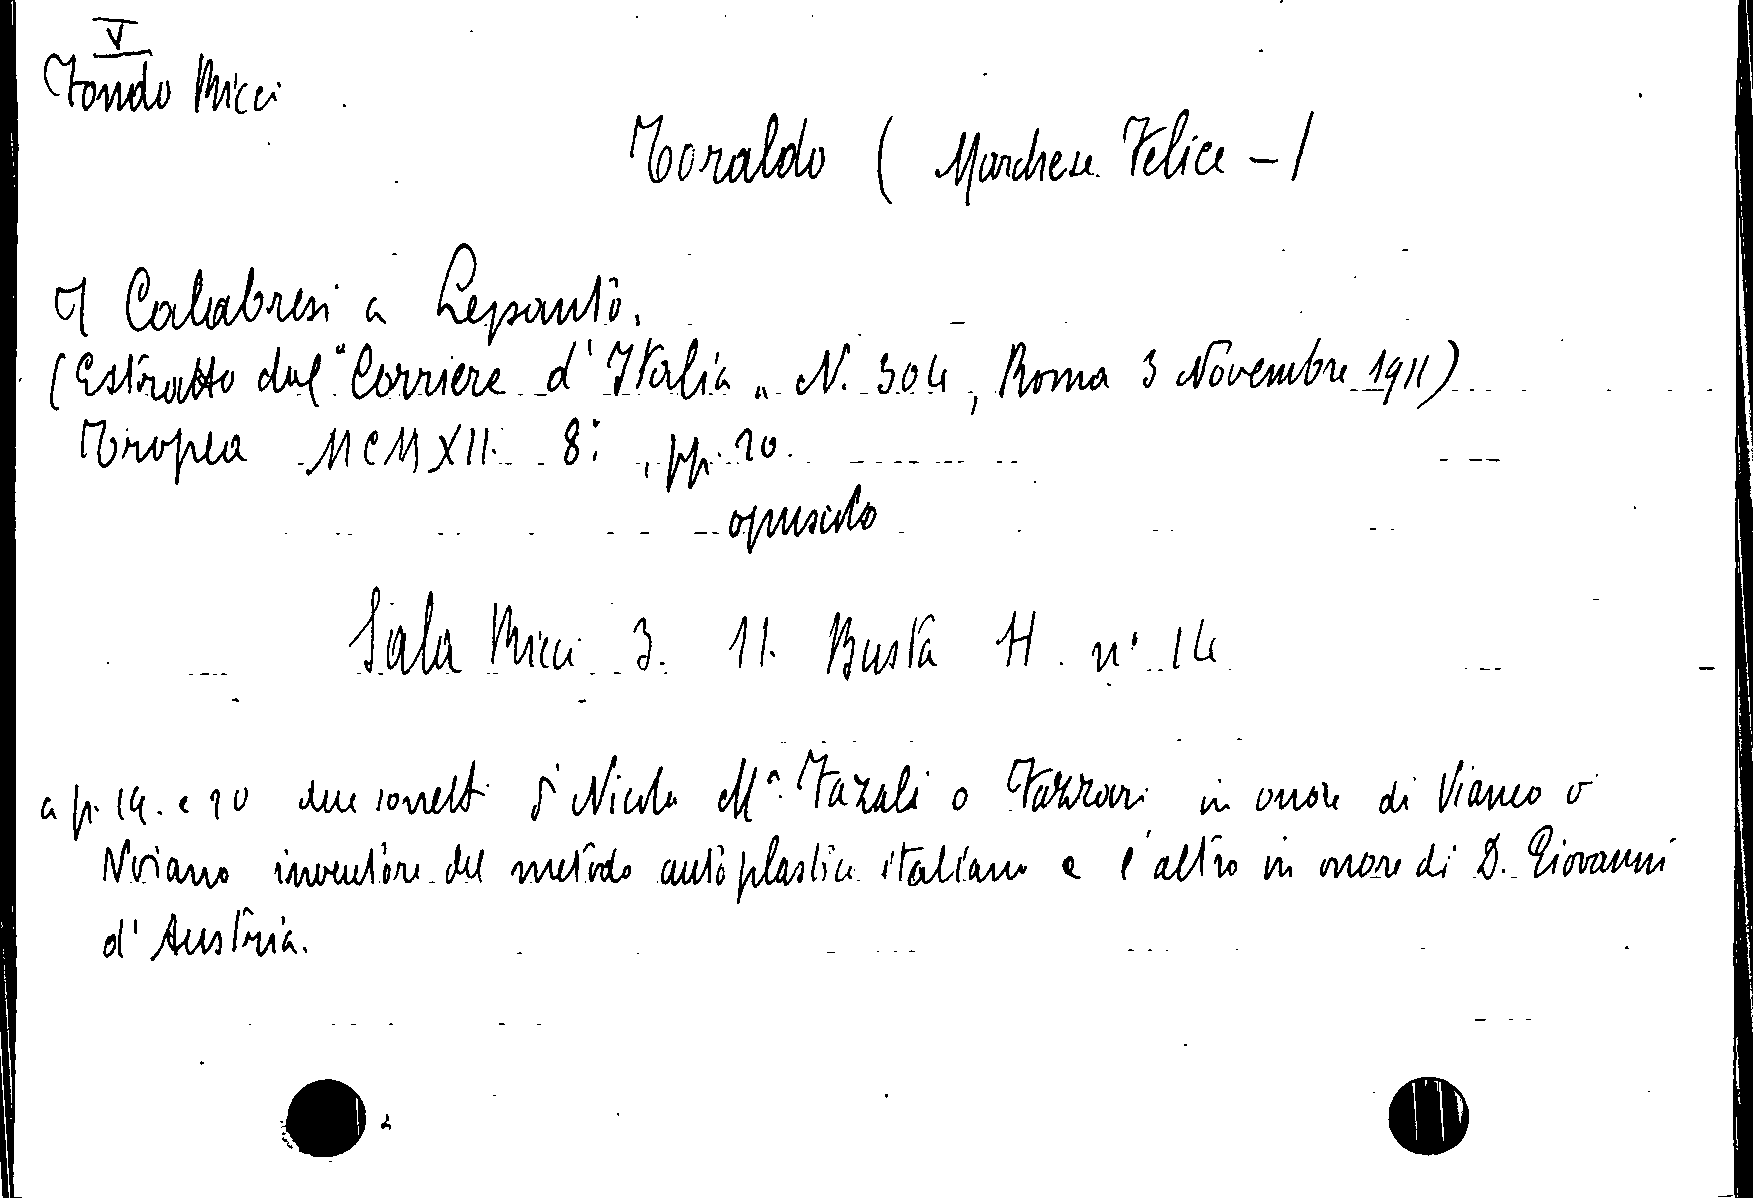 V
Fondo Ricci
Toraldo (Marchese Felice -)
I Calabresi a Lepanto.
(Estratto dal "Corriere d'Italia„ N. 304, Roma 3 Novembre 1911)
Tropea MCMXII. 8°, pp. 20.
opuscolo
Sala Ricci 3. 11. Busta H. n° 14
a p. 19. e 20 due sonetti di Nicola Mª. Fazali o Fazzari in onore di Vianeo o
Voiano inventore del metodo autoplastico italiano e l'altro in onore di D. Giovanni
d'Austria.